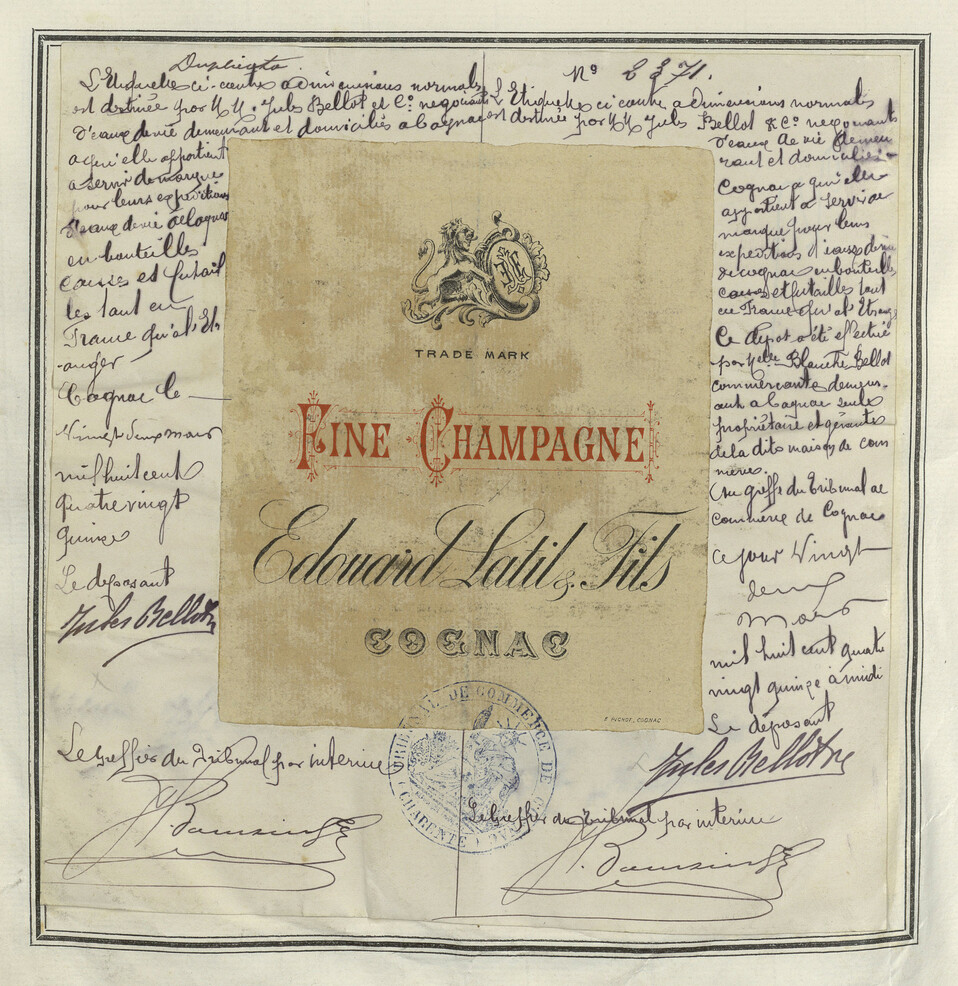 Duplicata
L'Etiquette ci-contre a dimensions normales
est destinée par MM. Jules Bellot et Cie negociants
d'eaux de vie demeurant et domiciliés a Cognac
a qui elle appartient
a servir de marque
pour leurs expeditions
d'eaux de vie de Cognac
en bouteilles
caisses et futail
les tant en
France qu'a l'Etr
anger
Cognac le
Vingt deux mars
mil huit cent
quatre vingt
quinze
Le déposant
Jules Bellot
Le Greffier du Tribunal par interim
No 2371.
L'Etiquette ci contre a dimensions normales
est destinée par MM Jules Bellot & Co negociants
d'eaux de vie demeu
rant et domiciliés
Cognac a qui elle
appartient a servir de
marque pour leurs
expeditions d'eaux de vie
de cognac en bouteilles
caisses et futailles tant
en France qu'a l'Etranger
Ce depot a été effectué
par Melle Blanche Bellot
commercante demeur
ant a Cognac seule
propriétaire et gérante
de la dite maison de com
merce.
Au Greffe du Tribunal de
Commerce de Cognac
ce jour Vingt
deux
Mars
mil huit cent quatre
vingt quinze à midi
Le déposant
Jules Bellot
Le Greffier du Tribunal par interim
TRADE MARK
FINE CHAMPAGNE
Edouard Latil & Fils
COGNAC
COGNAC
TRIBUNAL DE COMMERCE DE
(CHARENTE)